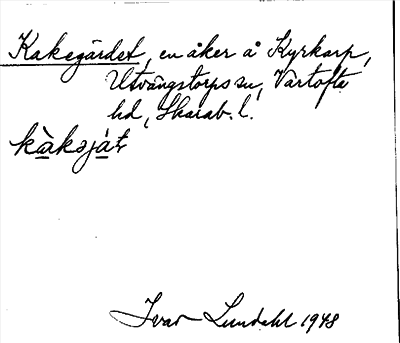 Kakegärdet, en åker å Kyrkarp,
Utvängstorps sn, Vartofta
hd, Skarab. l.
kàksjät
Ivar Lundahl 1948